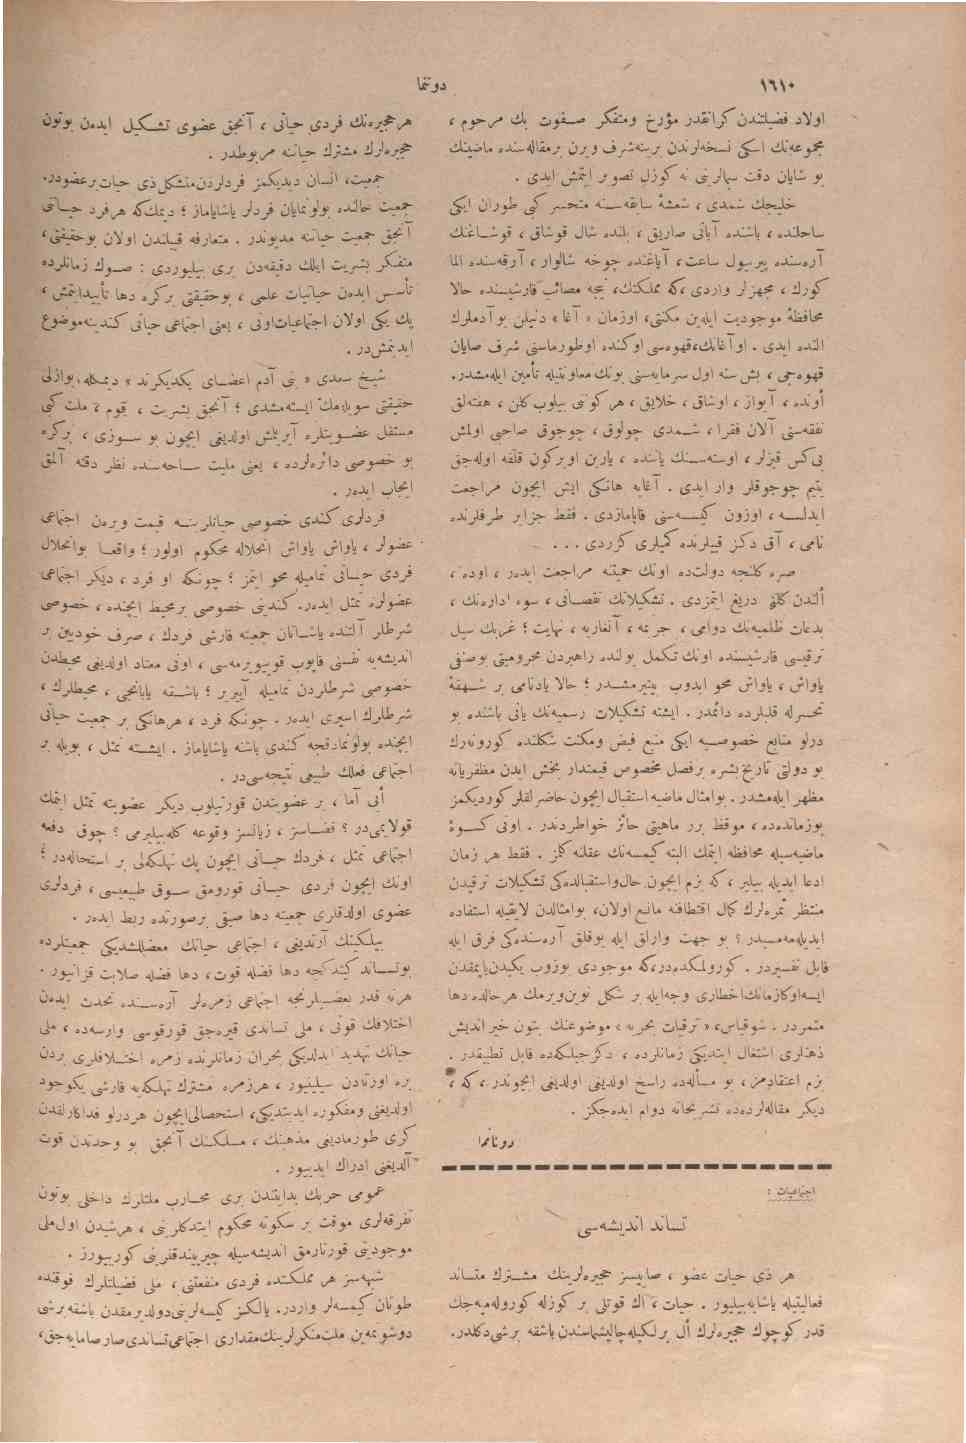 ١٦١٠
دونما
اولاد فضیلتندن كرانقدر مؤرخ ومتفكر صفوت بك مرحوم ،
مجموعه‌نك اسكی نسخه‌لرندن برینه‌شرف ویرن برمقاله‌سنده ماضینك
بو شایان دقت سیمالرینی نه كوزل تصویر ایتمش ایدی .
خلیجك شمدی ، شعشعۀ سابقه‌سنه متحسر كبی طوران ایكی
ساحلنده ، باشنده آبانی صاریق ، بلنده شال قوشاق ، قوشاغنك
آره‌سنده پیرسول ساعت ، آیاغنده چوخه شالوار ، آرقه‌سنده الما
كورك ، مجهزلر واردی ، كه مملكتك ، نیجه مصائب قارشیسنده حالا
محافظۀ موجودیت ایله‌ین مكنتی ، اوزمان « آغا » دنیلن بو آدملرك
النده ایدی . او آغانك ، قهوه‌سی اوكنده اوطورماسنی شرف صایان
قهوه‌جی ، بش سنه اول سرمایه‌سنی بونك معاونتیله تأمین ایله‌مشدر.
أونده ، آیواز ، اوشاق ، خلایق ، هر كونی بیلوب كلن ، هفته‌لق
نفقه‌سنی آلان فقرا ، شمدی چولوق ، چوجوق صاحبی اولمش
بی‌كس قیزلر ، اوسته‌سنك یاننده ، یارین اوبركون قلفه اوله‌جق
یتیم چوجوقلر وار ایدی . آغایه هانكی ایش ایچون مراجعت
ایدلسه ، اوزون كیسه‌سنی قاپامازدی . فقط جزایر طرفلرنده
نامی ، آق دكز قییلرنده كمیلری كزردی . . .
صره كلنجه دولت‌ده اونك حمیتنه مراجعت ایدر ، اوده ،
ألندن كلنی دریغ ایتمزدی . تشكیلاتك نقصانی ، سوء اداره‌نك ،
بدعات ظلمیه‌نك دوامی ، جریمه ، آنغاریه ، نهایت ؛ غربك سیل
ترقیسی قارشیسنده اونك تكمل یولنده راهبردن محرومیتی بوصنفی
یاواش ، یاواش محو ایدوب بیتیرمشدر ؛ حالا یادنامی بر شهقۀ
تحسرله قلبلرده دائمدر . ایشته تشكیلات رسمیه‌نك یانی باشنده بو
درلو منابع خصوصیه ایكی منبع فیض ومكنت شكلنده كورونه‌رك
بو دولتی تاریخ بشره برفصل مخصوص قیمتدار بخش ایدن مظفریاته
مظهر ایله‌مشدر . بوامثال ماضیه استقبال ایچون حاضرلقلر كوردیكمز
بوزمانده‌ده ، موقظ برر ماهیتی حائز خواطردندر . اونی كسوۀ
ماضیه‌سیله محافظه ایتمك البته كیمسه‌نك عقلنه كلمز . فقط هر زمان
ادعا ایدیله بیلیر ، كه بزم ایچون حال‌واستقبالده‌كی تشكیلات ترقیدن
منتظر ثمره‌لرك كمال اقتطافنه مانع اولان ، بوامثالدن لایقیله استفاده
ایدیله‌مه‌مسیدر ؟ بو جهت وارلق ایله یوقلق آره‌سنده‌كی فرق ایله
قابل تفسیردر . كورولمكده‌در ، كه موجودی بوزوب یكیدن‌یاپمقدن
ایسه‌اوكازمانك‌اخطاری وجه‌ایله بر شكل نوین‌ویرمك هرحالده دها
مثمردر . شوقیاس ، « ترقیات بحریه » موضوعنك بتون خیر اندیش
ذهنلری اشتغال ایتدیكی زمانلرده ، دكزجیلكده قابل تطبیقدر .
بزم اعتقادمز ، بو مسأله‌ده راسخ اولدیغی اولدیغی ایچوندر ، كه ،
دیكر مقاله‌لرده‌ده تشریحاته دوام ایده‌جكز .
دونانما
اجتماعیات :
تساند اندیشه‌سی
هر ذی حیات عضو ، صاییسز حجیره‌لرینك مشترك متساند
فعالیتیله یاشایه‌بیلیور . حیات ، اك قوتلی بر كوزله كوروله‌میه‌جك
قدر كوچوك حجیره‌لرك أل برلكیله‌چالیشماسندن باشقه برشی‌دكلدر.
هرحجیره‌نك فردی حیاتی ، آنجق عضوی تشكیل ایدن بوتون
حجیره‌لرك مشترك حیاتنه مربوطدر .
جمعیت، انسان دیدیكمز فردلردن‌متشكل‌ذی حیات برعضودر.
جمعیت حالنده بولونمایان فردلر یاشایاماز ؛ دیمك‌كه هرفرد حیاتی
آنجق جمعیت حیاتنه مدیوندر . متعارفه قبیلندن اولان بوحقیقتی ،
متفكر بشریت ایلك دقیقه‌دن بری بیلیوردی : صوك زمانلرده
تأسس ایدن حیاتیات علمی ، بوحقیقتی بركره دها تأییدایتمش ،
پك یكی اولان اجتماعیات‌اونی ، یعنی اجتماعی حیاتی كندینه‌موضوع
ایدینمش‌در .
شیخ سعدی « بنی آدم اعضای یكدیكرند » دیمكله، بوازلی
حقیقتی سویله‌مك ایسته‌مشدی ؛ آنجق بشریت ، قوم و ملت كبی
مستقل عضویتلره آیریلمش اولدیغی ایچون بو سوزی ، بركره
بو خصوصی دائره‌لرده ، یعنی ملیت ساحه‌سنده نظر دقته آلمق
ایجاب ایدر .
فردلری كندی خصوصی حیاتلرینه قیمت ویرن اجتماعی
عضولر ، یاواش یاواش انحلاله محكوم اولور ؛ واقعا بوانحلال
فردی حیاتی تمامیله محو ایتمز ؛ چونكه او فرد ، دیكر اجتماعی
عضولره تمثل ایدر. كندینی خصوصی برمحیط ایچنده ، خصوصی
شرطلر آلتنده یاشاتان جمعیته قارشی فردك ، صرف خودبین بر
اندیشه‌یه نفسنی قاپوب قویویرمه‌سی ، اونی معتاد اولدیغی محیطدن
خصوصی شرطلردن تمامیله آییریر ؛ باشقه یابانجی ، محیطلرك ،
شرطلرك اسیری ایدر . چونكه فرد ، هرهانكی بر جمعیت حیاتی
ایچنده بولونمادقجه كندی باشنه یاشایاماز . ایشته تمثل ، بویله بر
اجتماعی فعلك طبیعی نتیجه‌سی‌در .
أیی آما ، بر عضویتدن قورتیلوب دیكر عضویته تمثل ایتمك
قولایمی‌در ؟ قضاسز ، زیانسز وقوعه كله‌بیلیرمی ؟ چوق دفعه
اجتماعی تمثل ، فردك حیاتی ایچون پك تهلكه‌لی بر استحاله‌در ؛
اونك ایچون فردی حیاتی قورومق سوق طبیعیسی ، فردلری
عضوی اولدقلری جمعیته دها صیقی برصورتده ربط ایدر .
بیلكینك آرتدیغی ، اجتماعی حیاتك معضللشدیكی جمعیتلرده
بوتساند كیتدكجه دها فضله قوت ، دها فضله صلابت قزانیور .
هرنه قدر بعضیلرنجه اجتماعی زمره‌لر آره‌سنده تحدث ایدن
اختلافك قوتی ، ملی تساندی قیره‌جق قورقوسی وارسه‌ده ، ملی
حیاتك تهدید ایدلدیكی بحران زمانلرنده زمره اختلافلری بردن
بره اورتادن سیلینیور ، هرزمره مشترك تهلكه‌یه قارشی یكوجود
اولدیغنی ومفكوره ایدیندیكی، استحصالی‌ایچون هردرلو فداكارلقدن
كری طورمادیغی مذهبنك ، مسلكنك آنجق بو وحدتدن قوت
آلدیغنی ادراك ایدییور .
عمومی حربك بدایتندن بری محارب ملتلرك داخلی بوتون
تفرقه‌لری موقت بر سكوته محكوم ایتدكلرینی ، هرشیدن اول‌ملی
موجودیتی قورتارمق اندیشه‌سیله چیرپیندقلرینی كورییورز .
شبهه‌سز هر مملكتده فردی منفعتنی ، ملی فضیلتلرك فوقنده
طوتان كیمسه‌لر واردر. یالكز كیسه‌لرینی‌دولدیرمقدن باشقه‌برشی
دوشونمه‌ین ملت‌منكرلرینك‌مقداری اجتماعی‌تساندی‌صارصامایه‌جق،